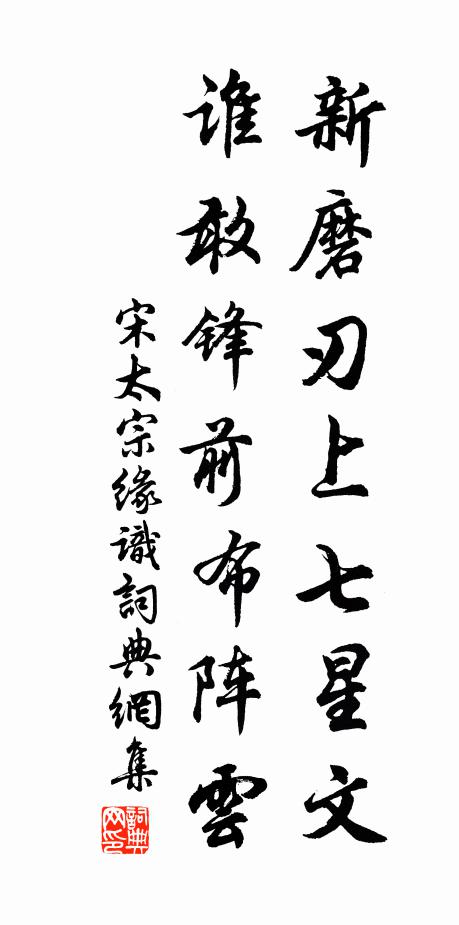 新磨刃上七星文
谁敢锋前布阵雲
宋太宗缘識詞典網集
詞典网印